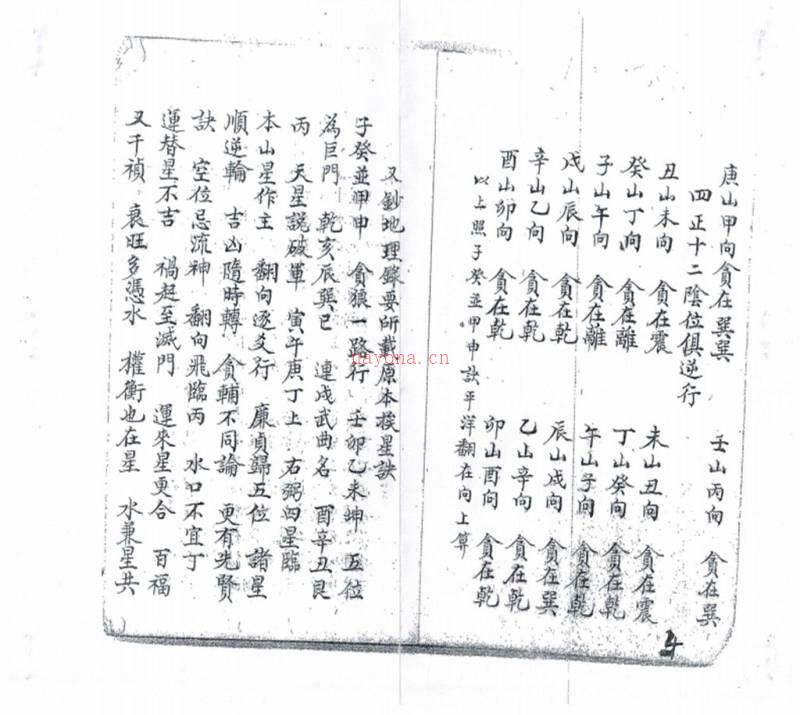 庚山甲向 貪在巽巽 壬山丙向 貪在巽
四正十二陰位俱逆行
丑山未向 貪在震 未山丑向 貪在震
癸山丁向 貪在離 丁山癸向 貪在乾
子山午向 貪在離 午山子向 貪在乾
戌山辰向 貪在乾 辰山戌向 貪在巽
辛山乙向 貪在乾 乙山辛向 貪在乾
酉山卯向 貪在乾 卯山酉向 貪在乾
以上照子癸並甲申訣平洋翻在向上算
又鈔地理錄要所載原本挨星訣
子癸並甲申 貪狼一路行 壬卯乙未坤 五位
為巨門 乾亥辰巽巳 連戌武曲名 酉辛丑艮
丙 天星說破軍 寅午庚丁上 右弼四星臨
本山星作主 翻向逐爻行 廉貞歸五位 諸星
順逆輪 吉凶隨時轉 貪輔不同論 更有先賢
訣 空位忌流神 翻向飛臨丙 水口不宜丁
運替星不吉 禍起至滅門 運來星更合 百福
又千禎 衰旺多憑水 權衡也在星 水兼星共
4
nayona.cn